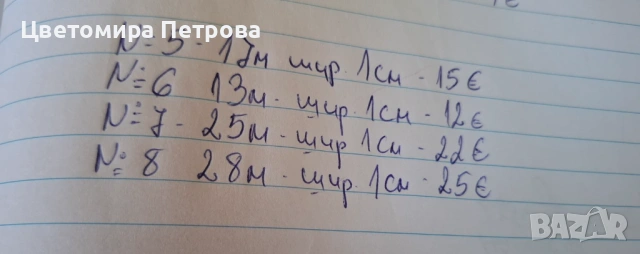 Цветомира Петрова
№ 5 - 17м шир. 1см - 15€
№ 6 13м - шир. 1см - 12€
№ 7 - 25м - шир. 1см - 22€
№ 8 28м - шир. 1см - 25€
BAZAR